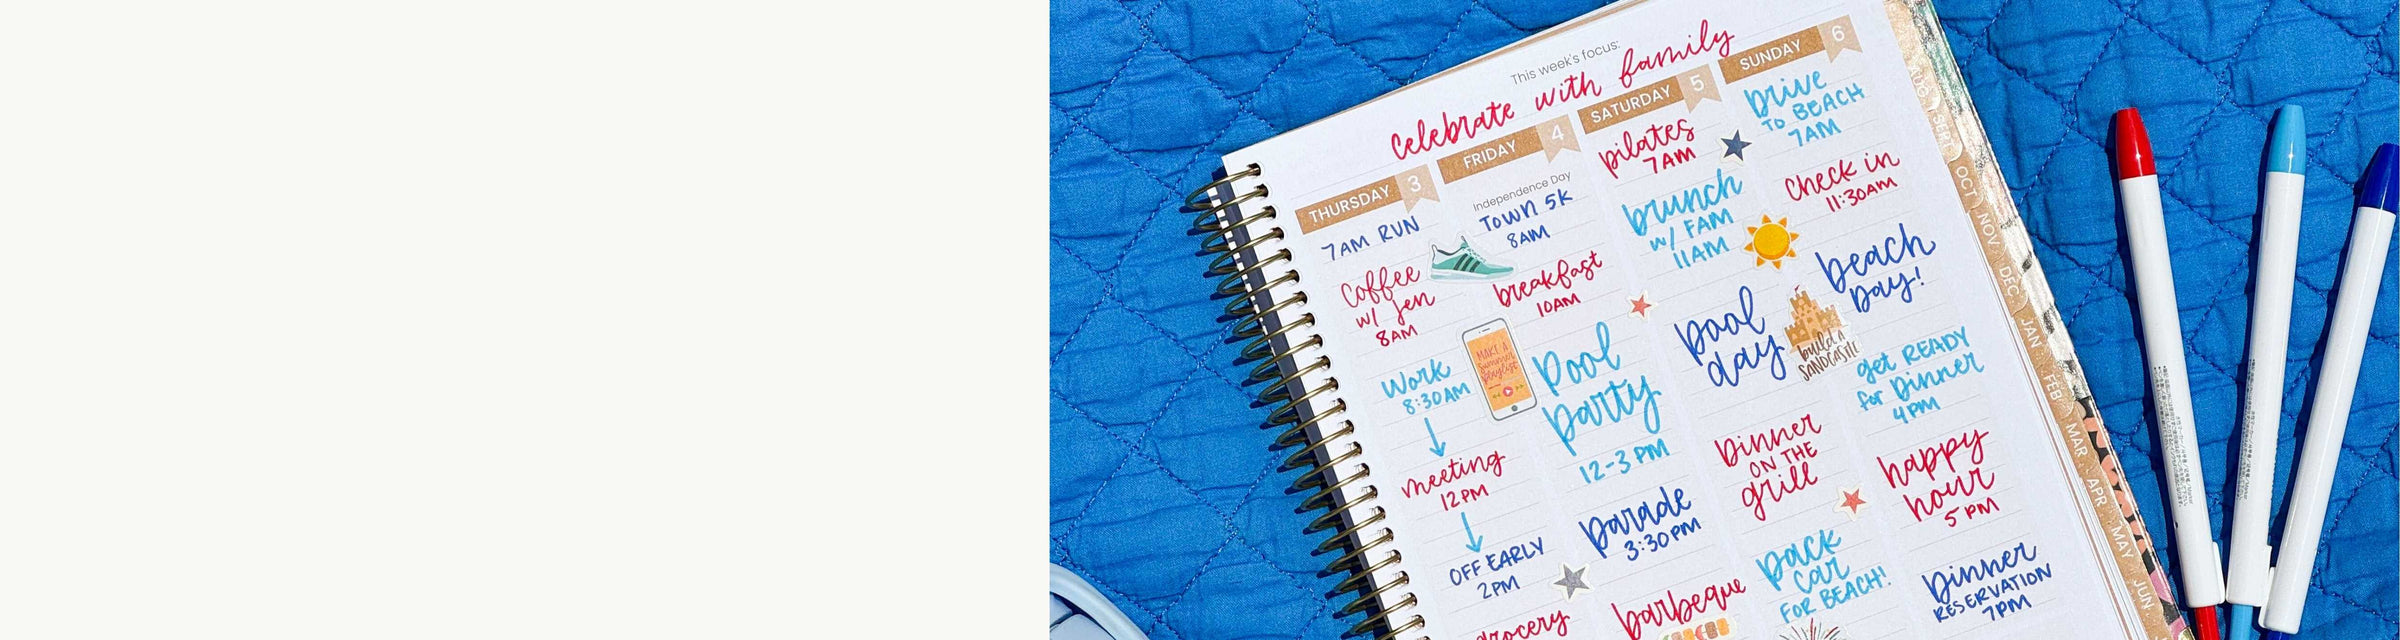 This week's focus:
celebrate with family
THURSDAY 3
7AM RUN
coffee
w/ Jen
8AM
Work
8:30AM
meeting
12PM
OFF EARLY
2PM
grocery
FRIDAY 4
Independence Day
TOWN 5K
8AM
breakfast
10AM
MAKE A
summer
playlist
Pool
party
12-3 PM
parade
3:30PM
barbeque
SATURDAY 5
pilates
7AM
brunch
w/ FAM
11AM
pool
day
build a
SANDCASTLE
Dinner
ON THE
grill
pack
car
FOR BEACH!
SUNDAY 6
Drive
TO BEACH
7AM
Check in
11:30AM
beach
Day!
get READY
for Dinner
4PM
happy
hour
5 PM
Dinner
RESERVATION
7PM
AUG
SEPT
OCT
NOV
DEC
JAN
FEB
MAR
APR
MAY
JUN